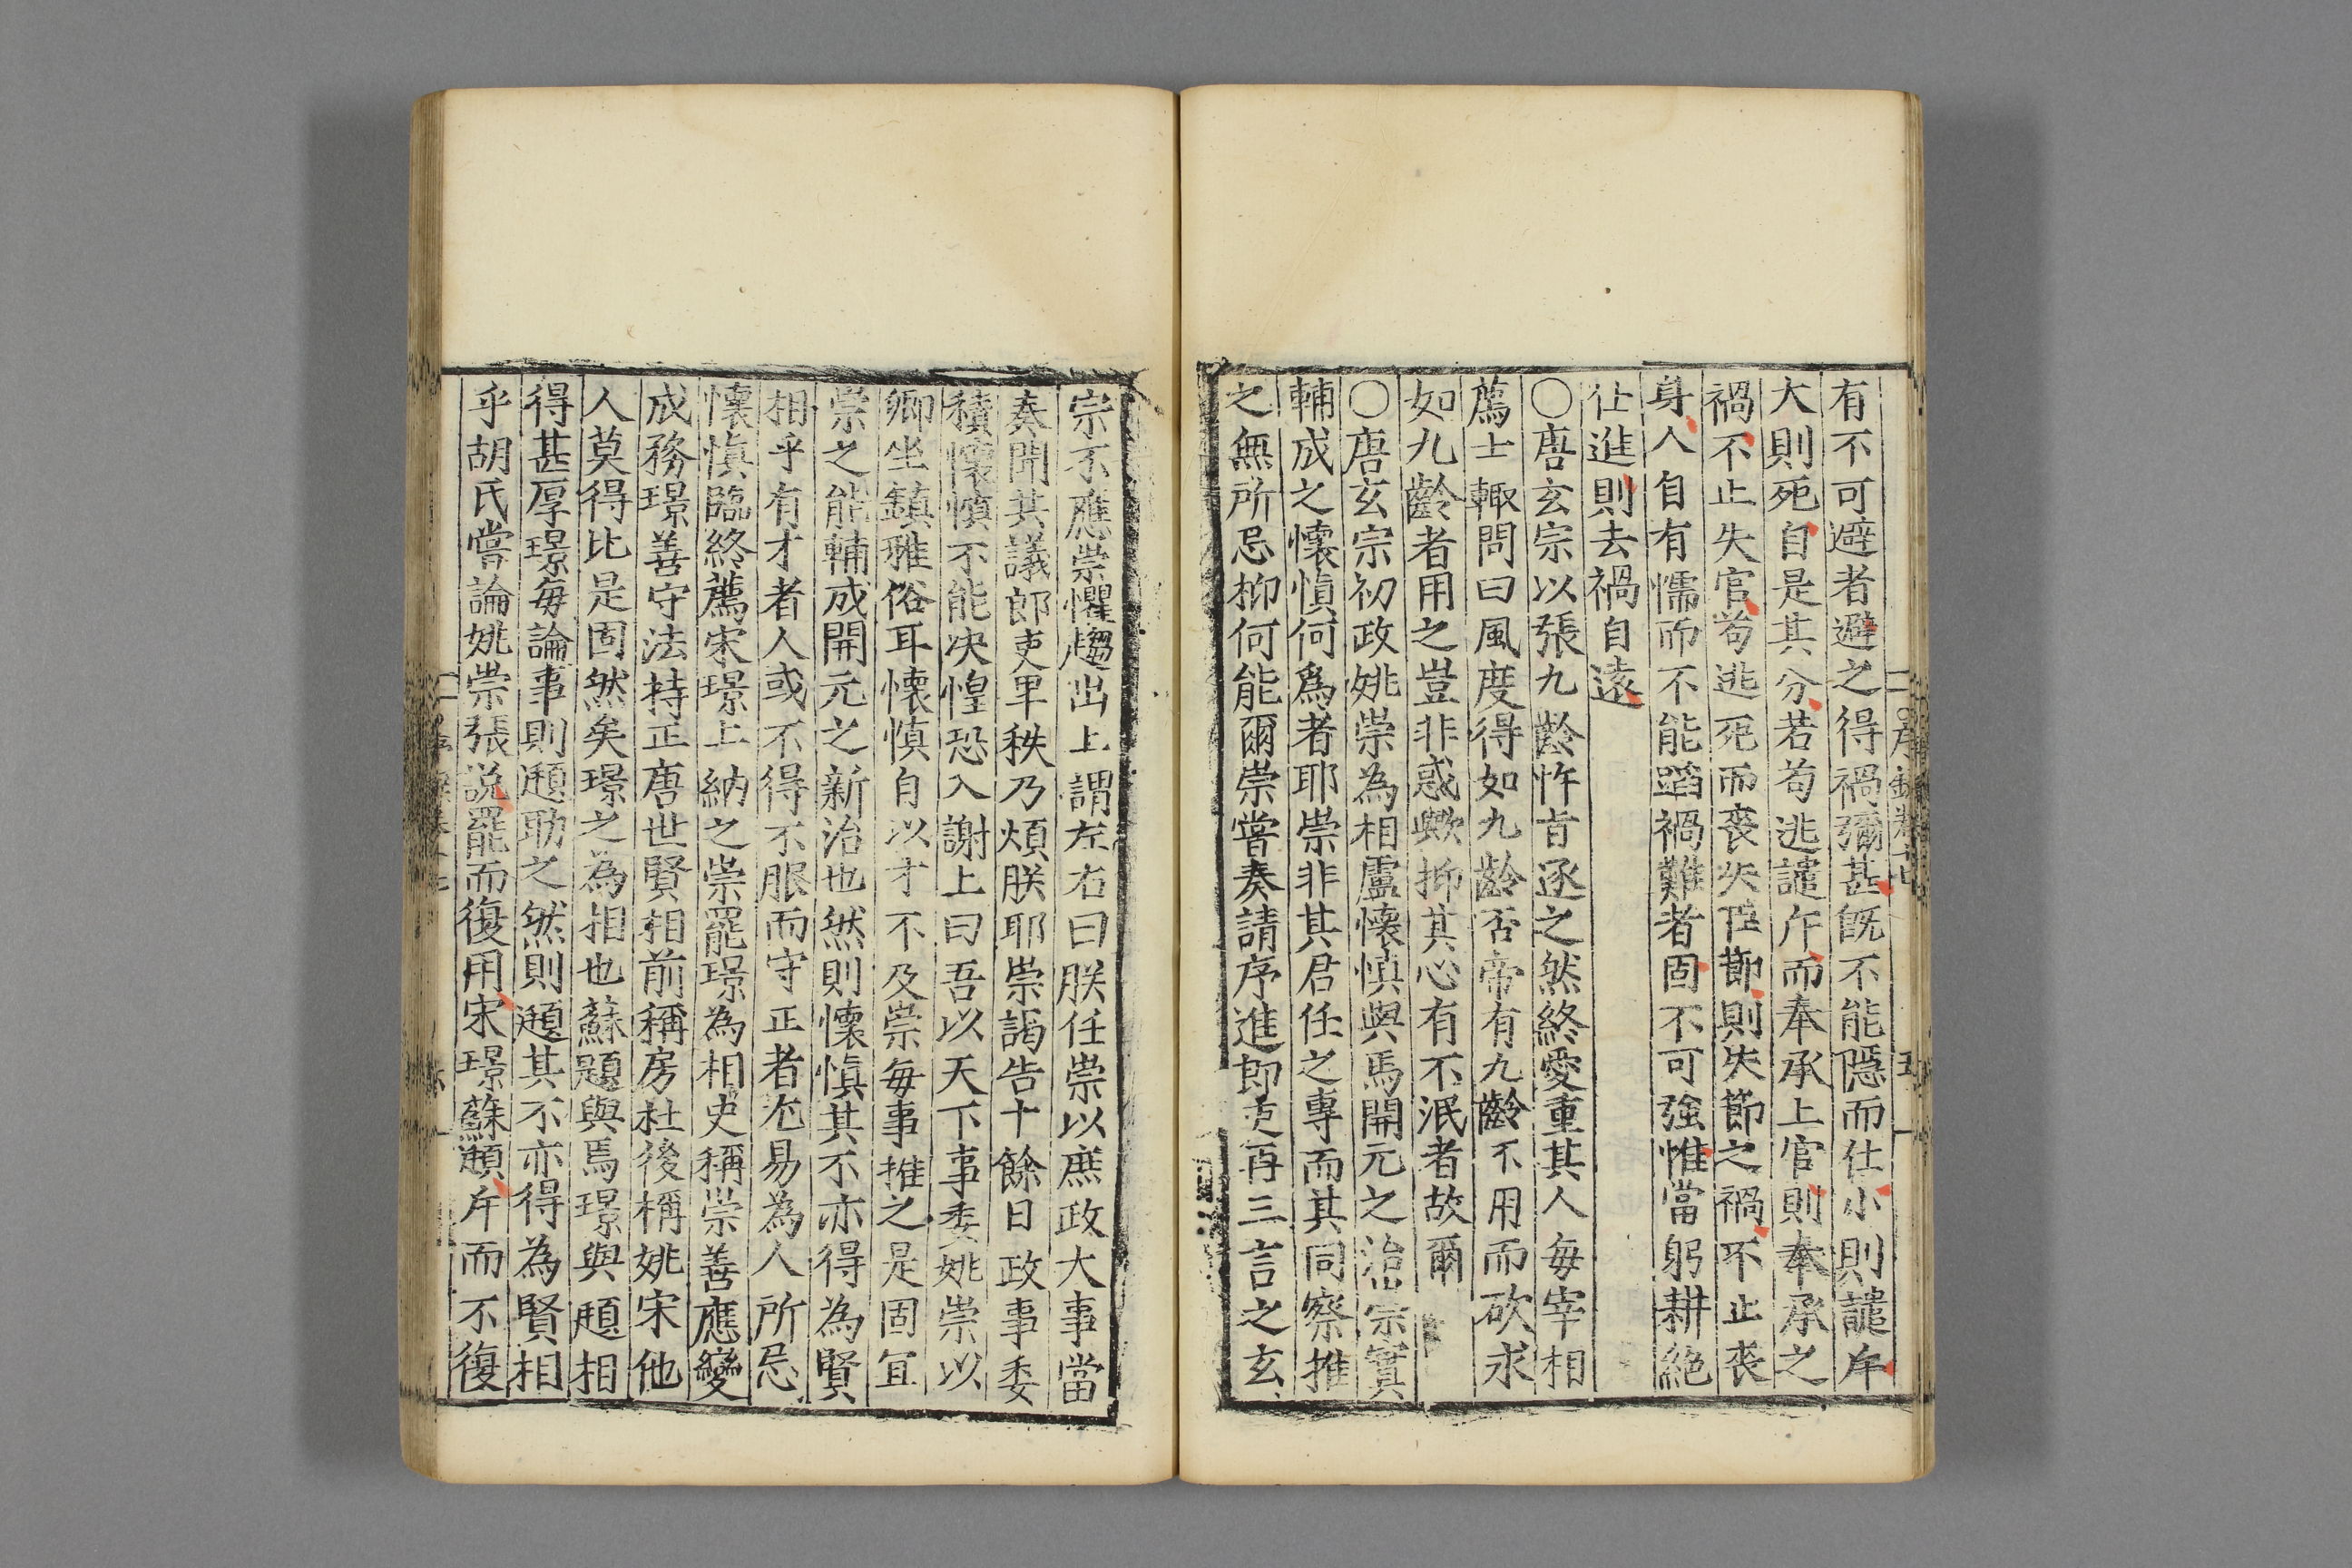 有不可避者避之得禍彌甚既不能隱而仕小則譴斥
大則死自是其分若苟逃譴斥而奉承上官則奉承之
禍不止失官苟逃死而喪失臣節則失節之禍不止喪
身人自有懦而不能蹈禍難者固不可強惟當躬耕絶
仕進則去禍自遠
〇唐玄宗以張九齡忤旨逐之然終愛重其人每宰相
薦士輙問曰風度得如九齡否帝有九齡不用而欲求
如九齡者用之豈非惑歟抑其心有不泯者故爾
〇唐玄宗初政姚崇為相盧懷慎與焉開元之治崇實
輔成之懷慎何爲者耶崇非其君任之專而其同察推
之無所忌抑何能爾崇嘗奏請序進郎吏再三言之玄
宗不應崇懼趨出上謂左右曰朕任崇以庶政大事當
奏聞共議郎吏卑秩乃煩朕耶崇謁告十餘日政事委
積懷慎不能决惶恐入謝上曰吾以天下事委姚崇以
卿坐鎮雅俗耳懷慎自以才不及崇每事推之是固宜
崇之能輔成開元之新治也然則懷慎其不亦得為賢
相乎有才者人或不得不服而守正者尤易為人所忌
懷慎臨終薦宋璟上納之崇罷璟為相史稱崇善應變
成務璟善守法持正唐世賢相前稱房杜後稱姚宋他
人莫得比是固然矣璟之為相也蘇頲與焉璟與頲相
得甚厚璟每論事則頲助之然則頲其不亦得為賢相
乎胡氏嘗論姚崇張説罷而復用宋璟蘇頲斥而不復